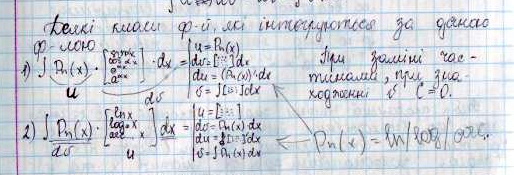 Деякі класи ф-й, які інтегруються за даною
ф-лою
1) ∫ Pn(x) · [sin αx cos αx e^αx a^αx] · dx = | u = Pn(x) dv = [:::] dx du = (Pn(x))' dx v = ∫[:::]dx
u dv
При заміні час-
тинами, при зна-
ходженні v C=0.
2) ∫ Pn(x) · [ln x log x arc x] dx = | u = [:::] dv = Pn(x) · dx du = [:::]' dx v = ∫ Pn(x) dx
dv u
Pn(x) = ln/log/arc.